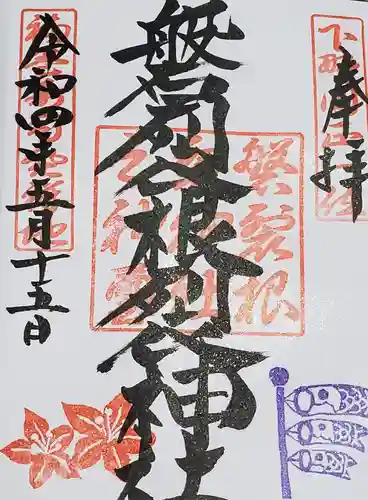 奉拝
磐裂根裂神社
磐裂根
裂神社
之神璽
令和四年五月十五日